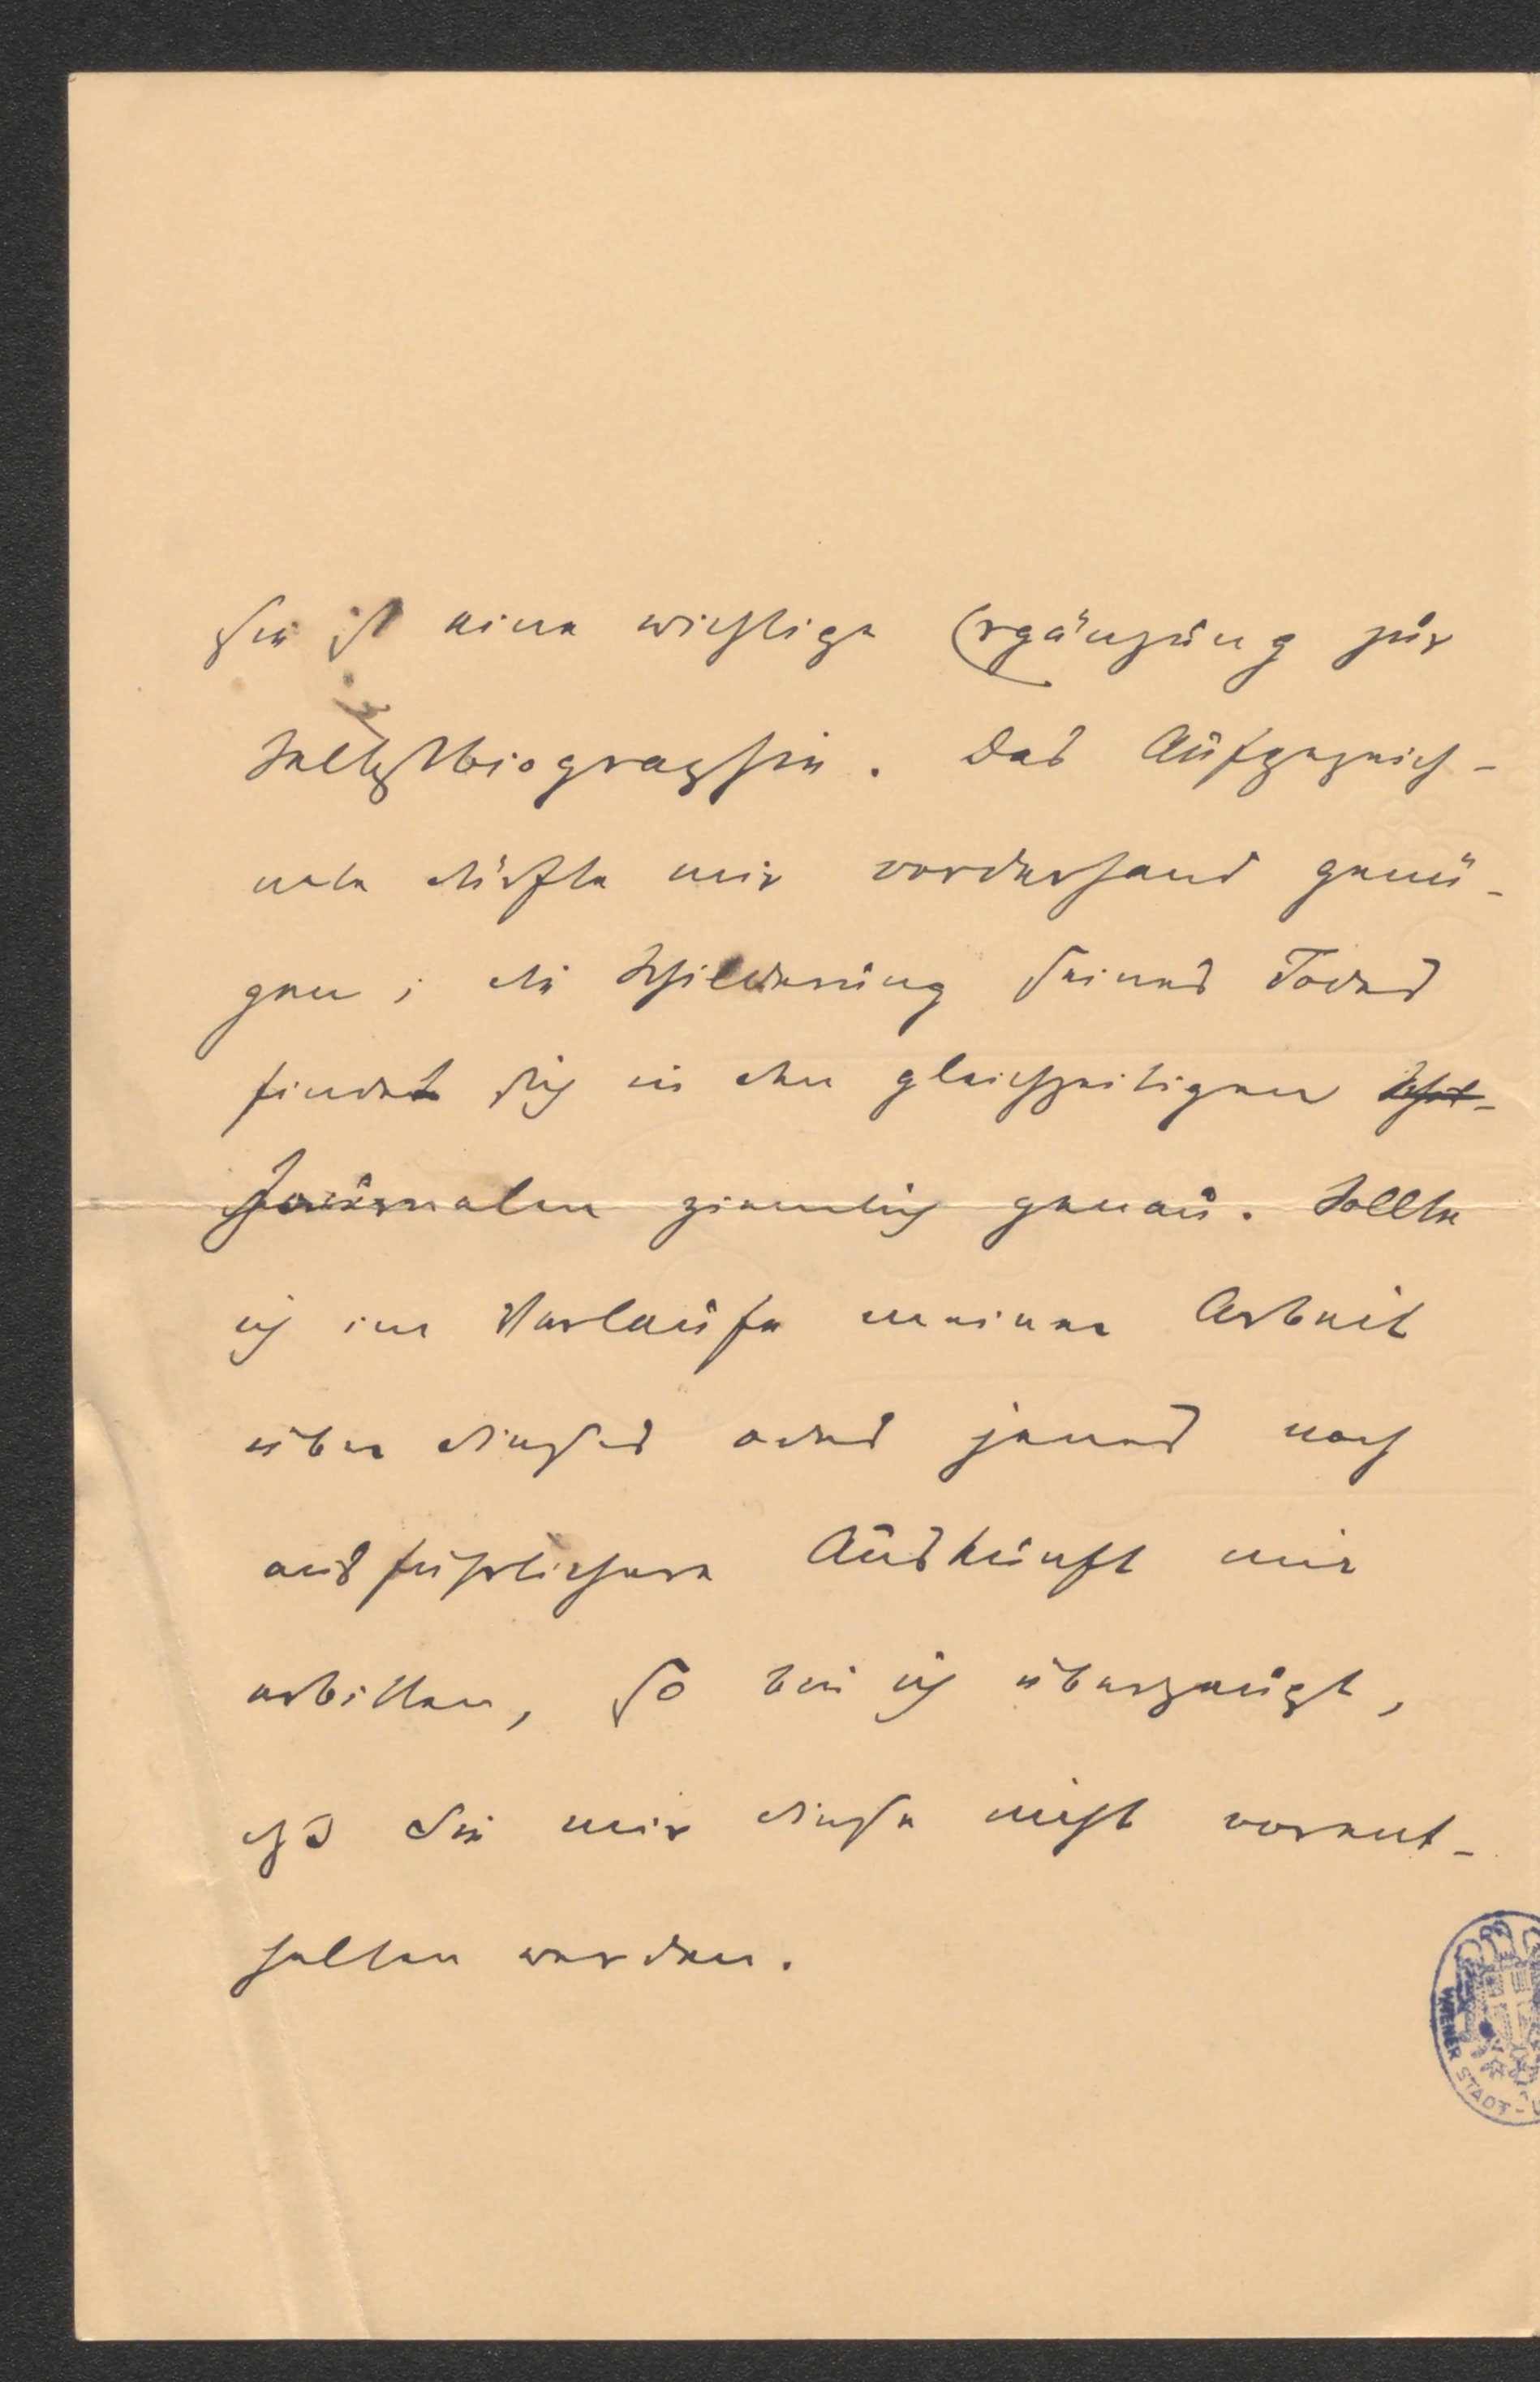 sie ist eine wichtige Ergänzung zur
Selbstbiographie. Das Aufgezeich-
nete dürfte mir vorderhand genü-
gen; die Schilderung seines Todes
findet sich in den gleichzeitigen
Journalen ziemlich genau. Sollte
ich im Verlaufe meiner Arbeit
über dieses oder jenes noch
ausführlichere Auskunft mir
erbitten, so bin ich überzeugt,
daß Sie mir diese nicht vorent-
halten werden.
WIENER STADT-